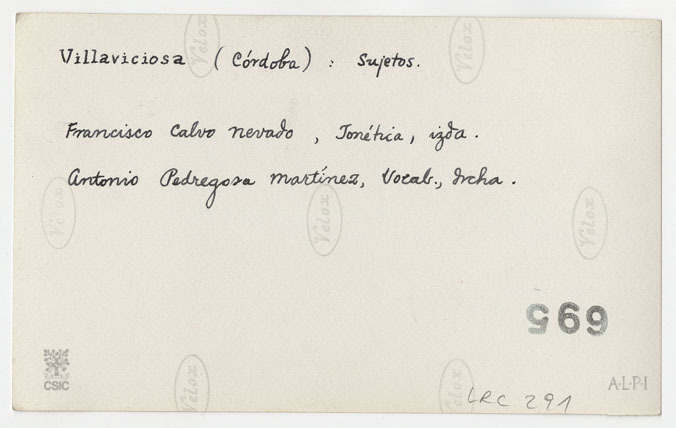 Villaviciosa (Córdoba) : Sujetos.
Francisco Calvo Nevado, Fonética, izda.
Antonio Pedregosa Martínez, Vocab., drcha.
Velox
Velox
Velox
Velox
Velox
Velox
Velox
695
CSIC
A·L·P·I
LRC 291